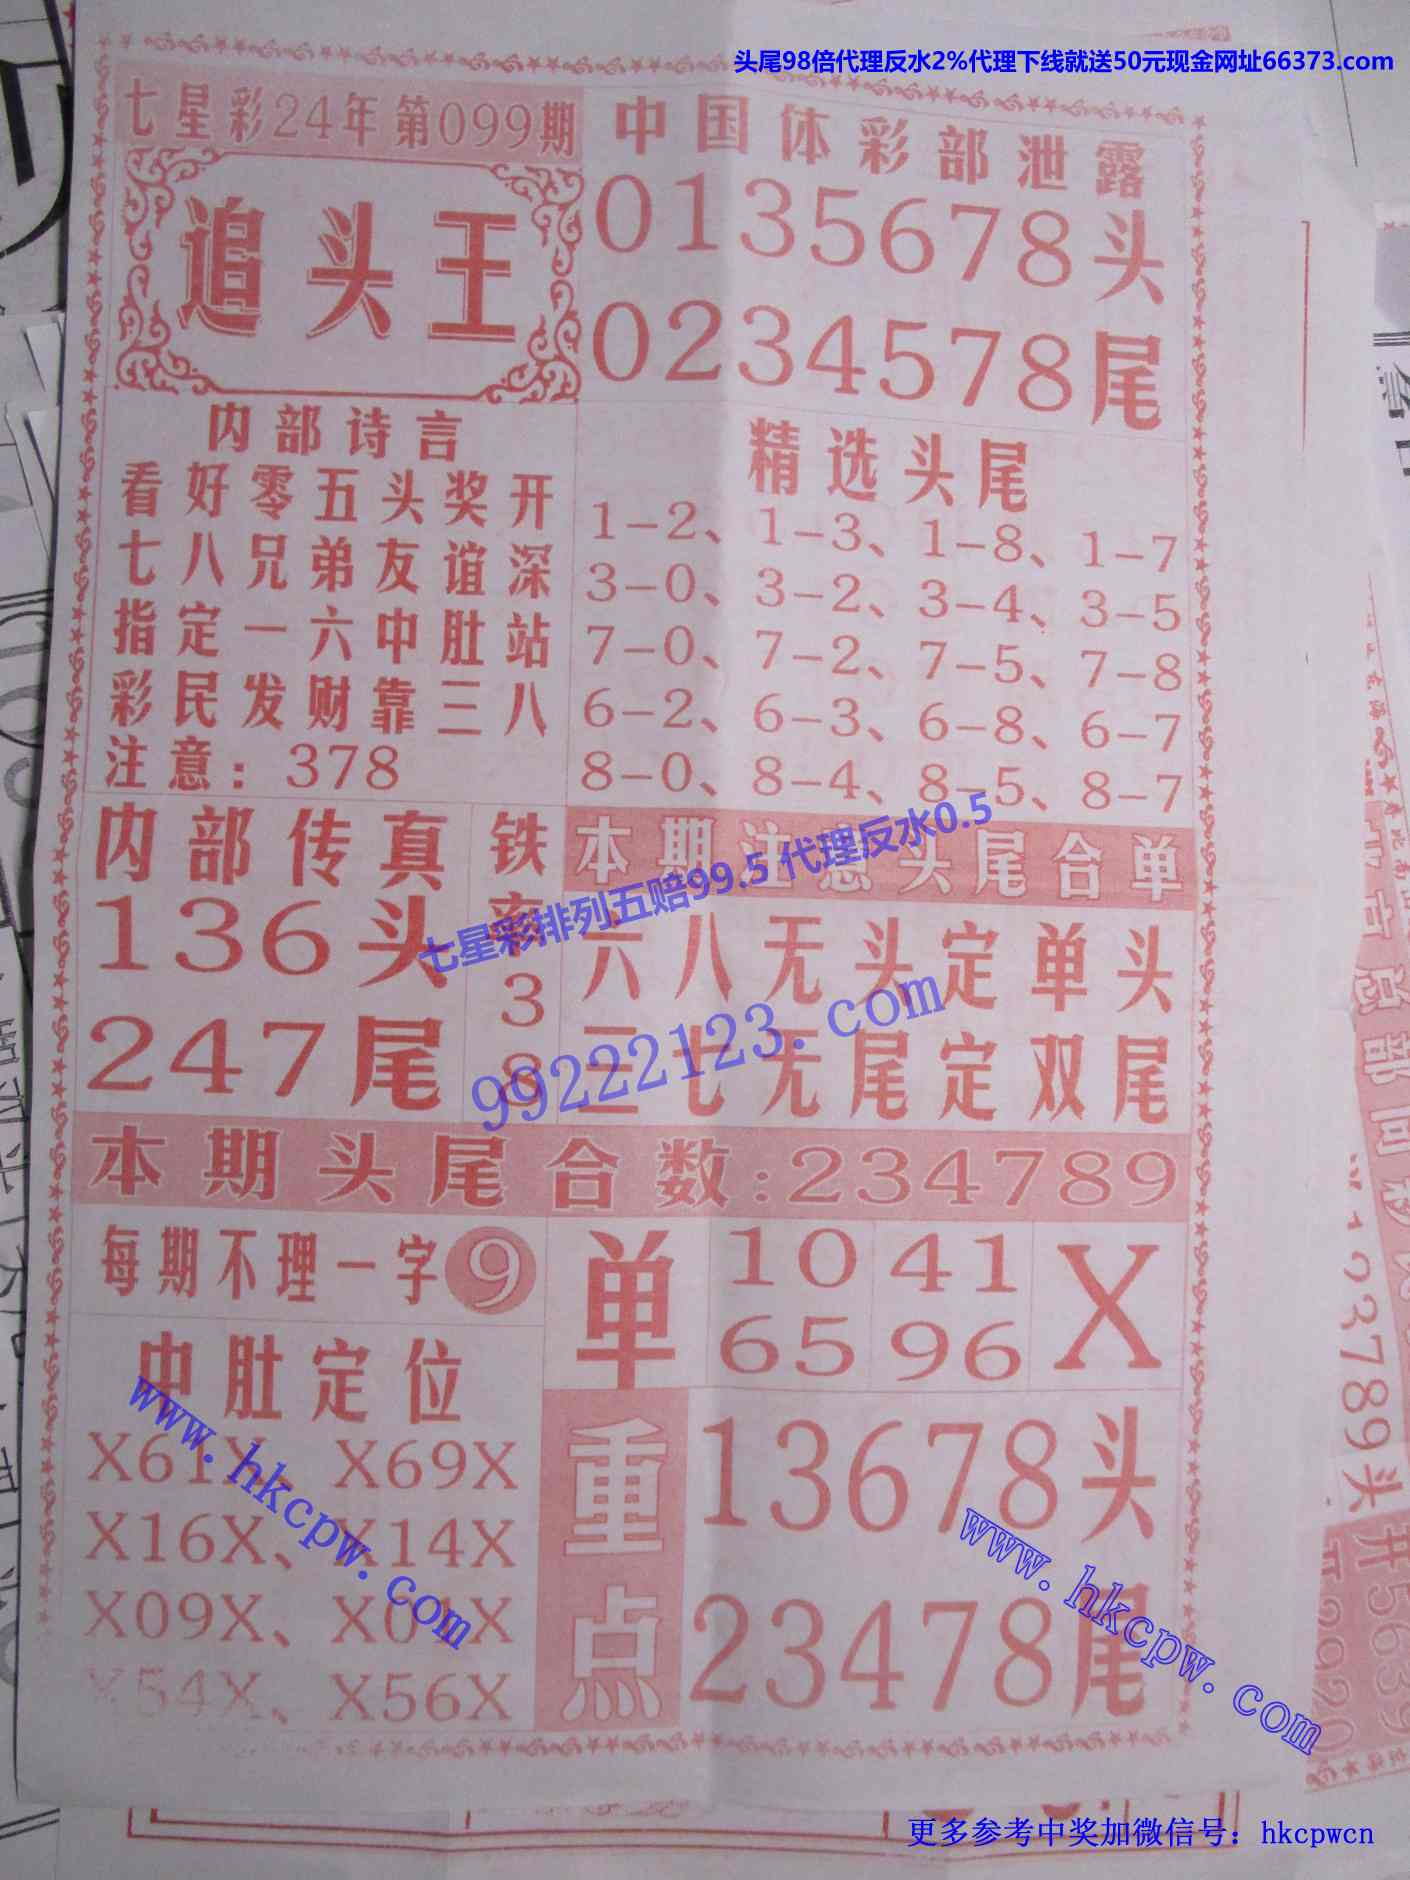 头尾98倍代理反水2%代理下线就送50元现金网址66373.com
七星彩24年第099期
追头王
中国体彩部泄露
0135678头
0234578尾
内部诗言
看好零五头奖开
七八兄弟友谊深
指定一六中肚站
彩民发财靠三八
注意：378
精选头尾
1-2、1-3、1-8、1-7
3-0、3-2、3-4、3-5
7-0、7-2、7-5、7-8
6-2、6-3、6-8、6-7
8-0、8-4、8-5、8-7
内部传真
136头
247尾
铁
38
本期注意头尾合单
六八无头定单头
三七无尾定双尾
七星彩排列五赔99.5 代理反水0.5
99222123.com
本期头尾合数:234789
每期不理一字9
单
10 41
65 96
X
中肚定位
X61X、X69X
X16X、X14X
X09X、
X54X、X56X
重点
13678头
23478尾
www.hkcpw.com
www.hkcpw.com
更多参考中奖加微信号：hkcpwcn